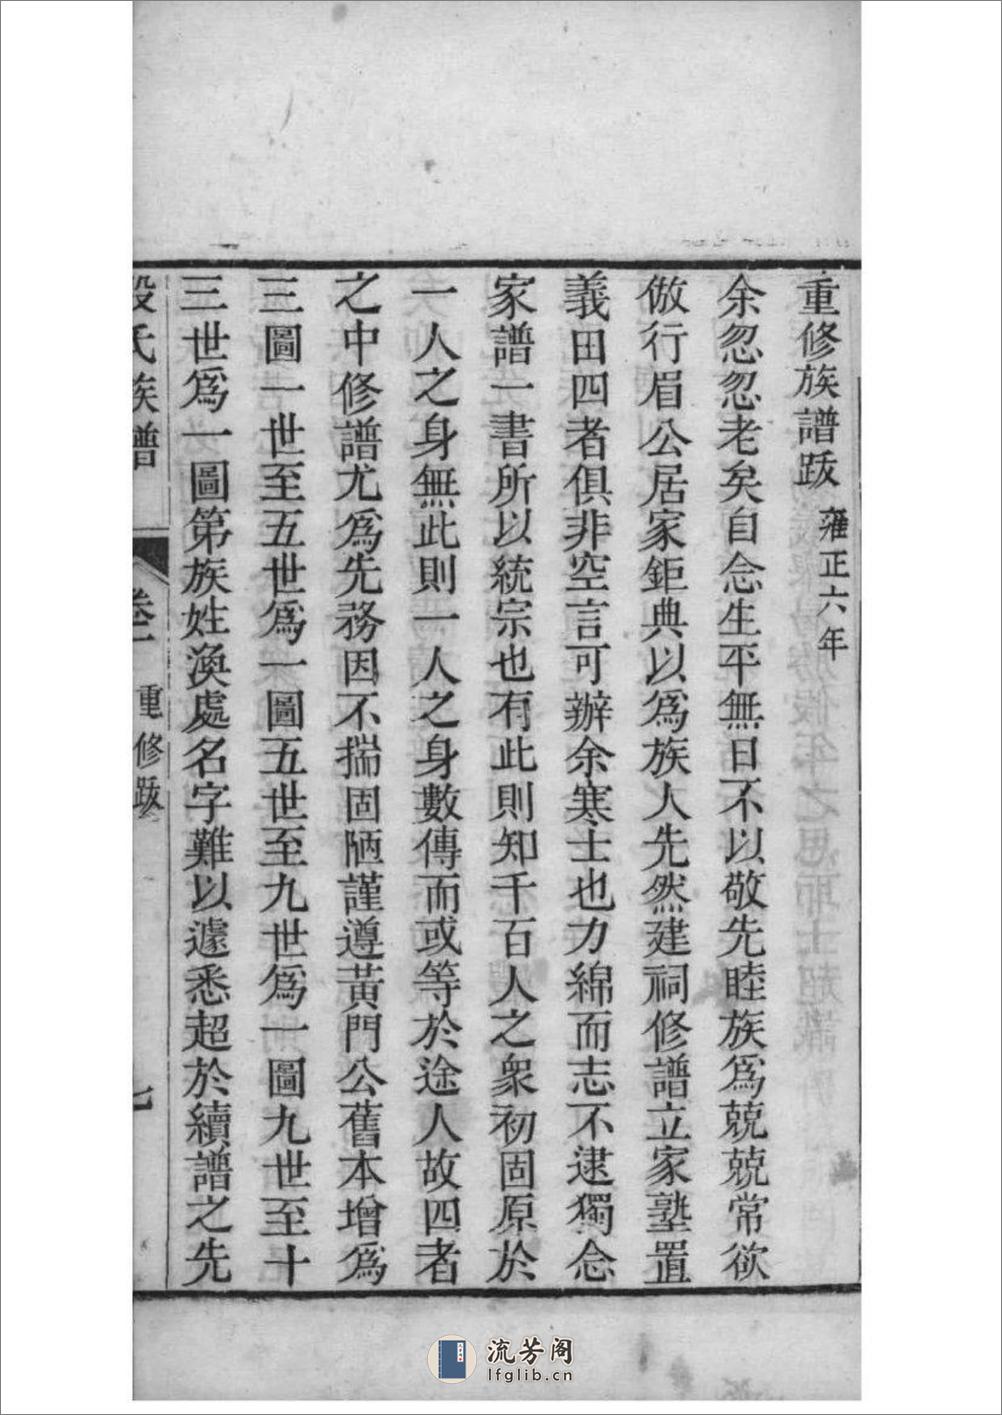 重修族譜跋 雍正六年
余忽忽老矣自念生平無日不以敬先睦族爲兢兢常欲
倣行眉公居家鉅典以爲族人先然建祠修譜立家塾置
義田四者俱非空言可辦余寒士也力綿而志不逮獨念
家譜一書所以統宗也有此則知千百人之衆初固原於
一人之身無此則一人之身數傳而或等於途人故四者
之中修譜尤爲先務因不揣固陋謹遵黃門公舊本增爲
三圖一世至五世爲一圖五世至九世爲一圖九世至十
三世爲一圖第族姓渙處名字難以遽悉超於續譜之先
氏族譜
卷一
重修跋
七
流芳阁
lfglib.cn